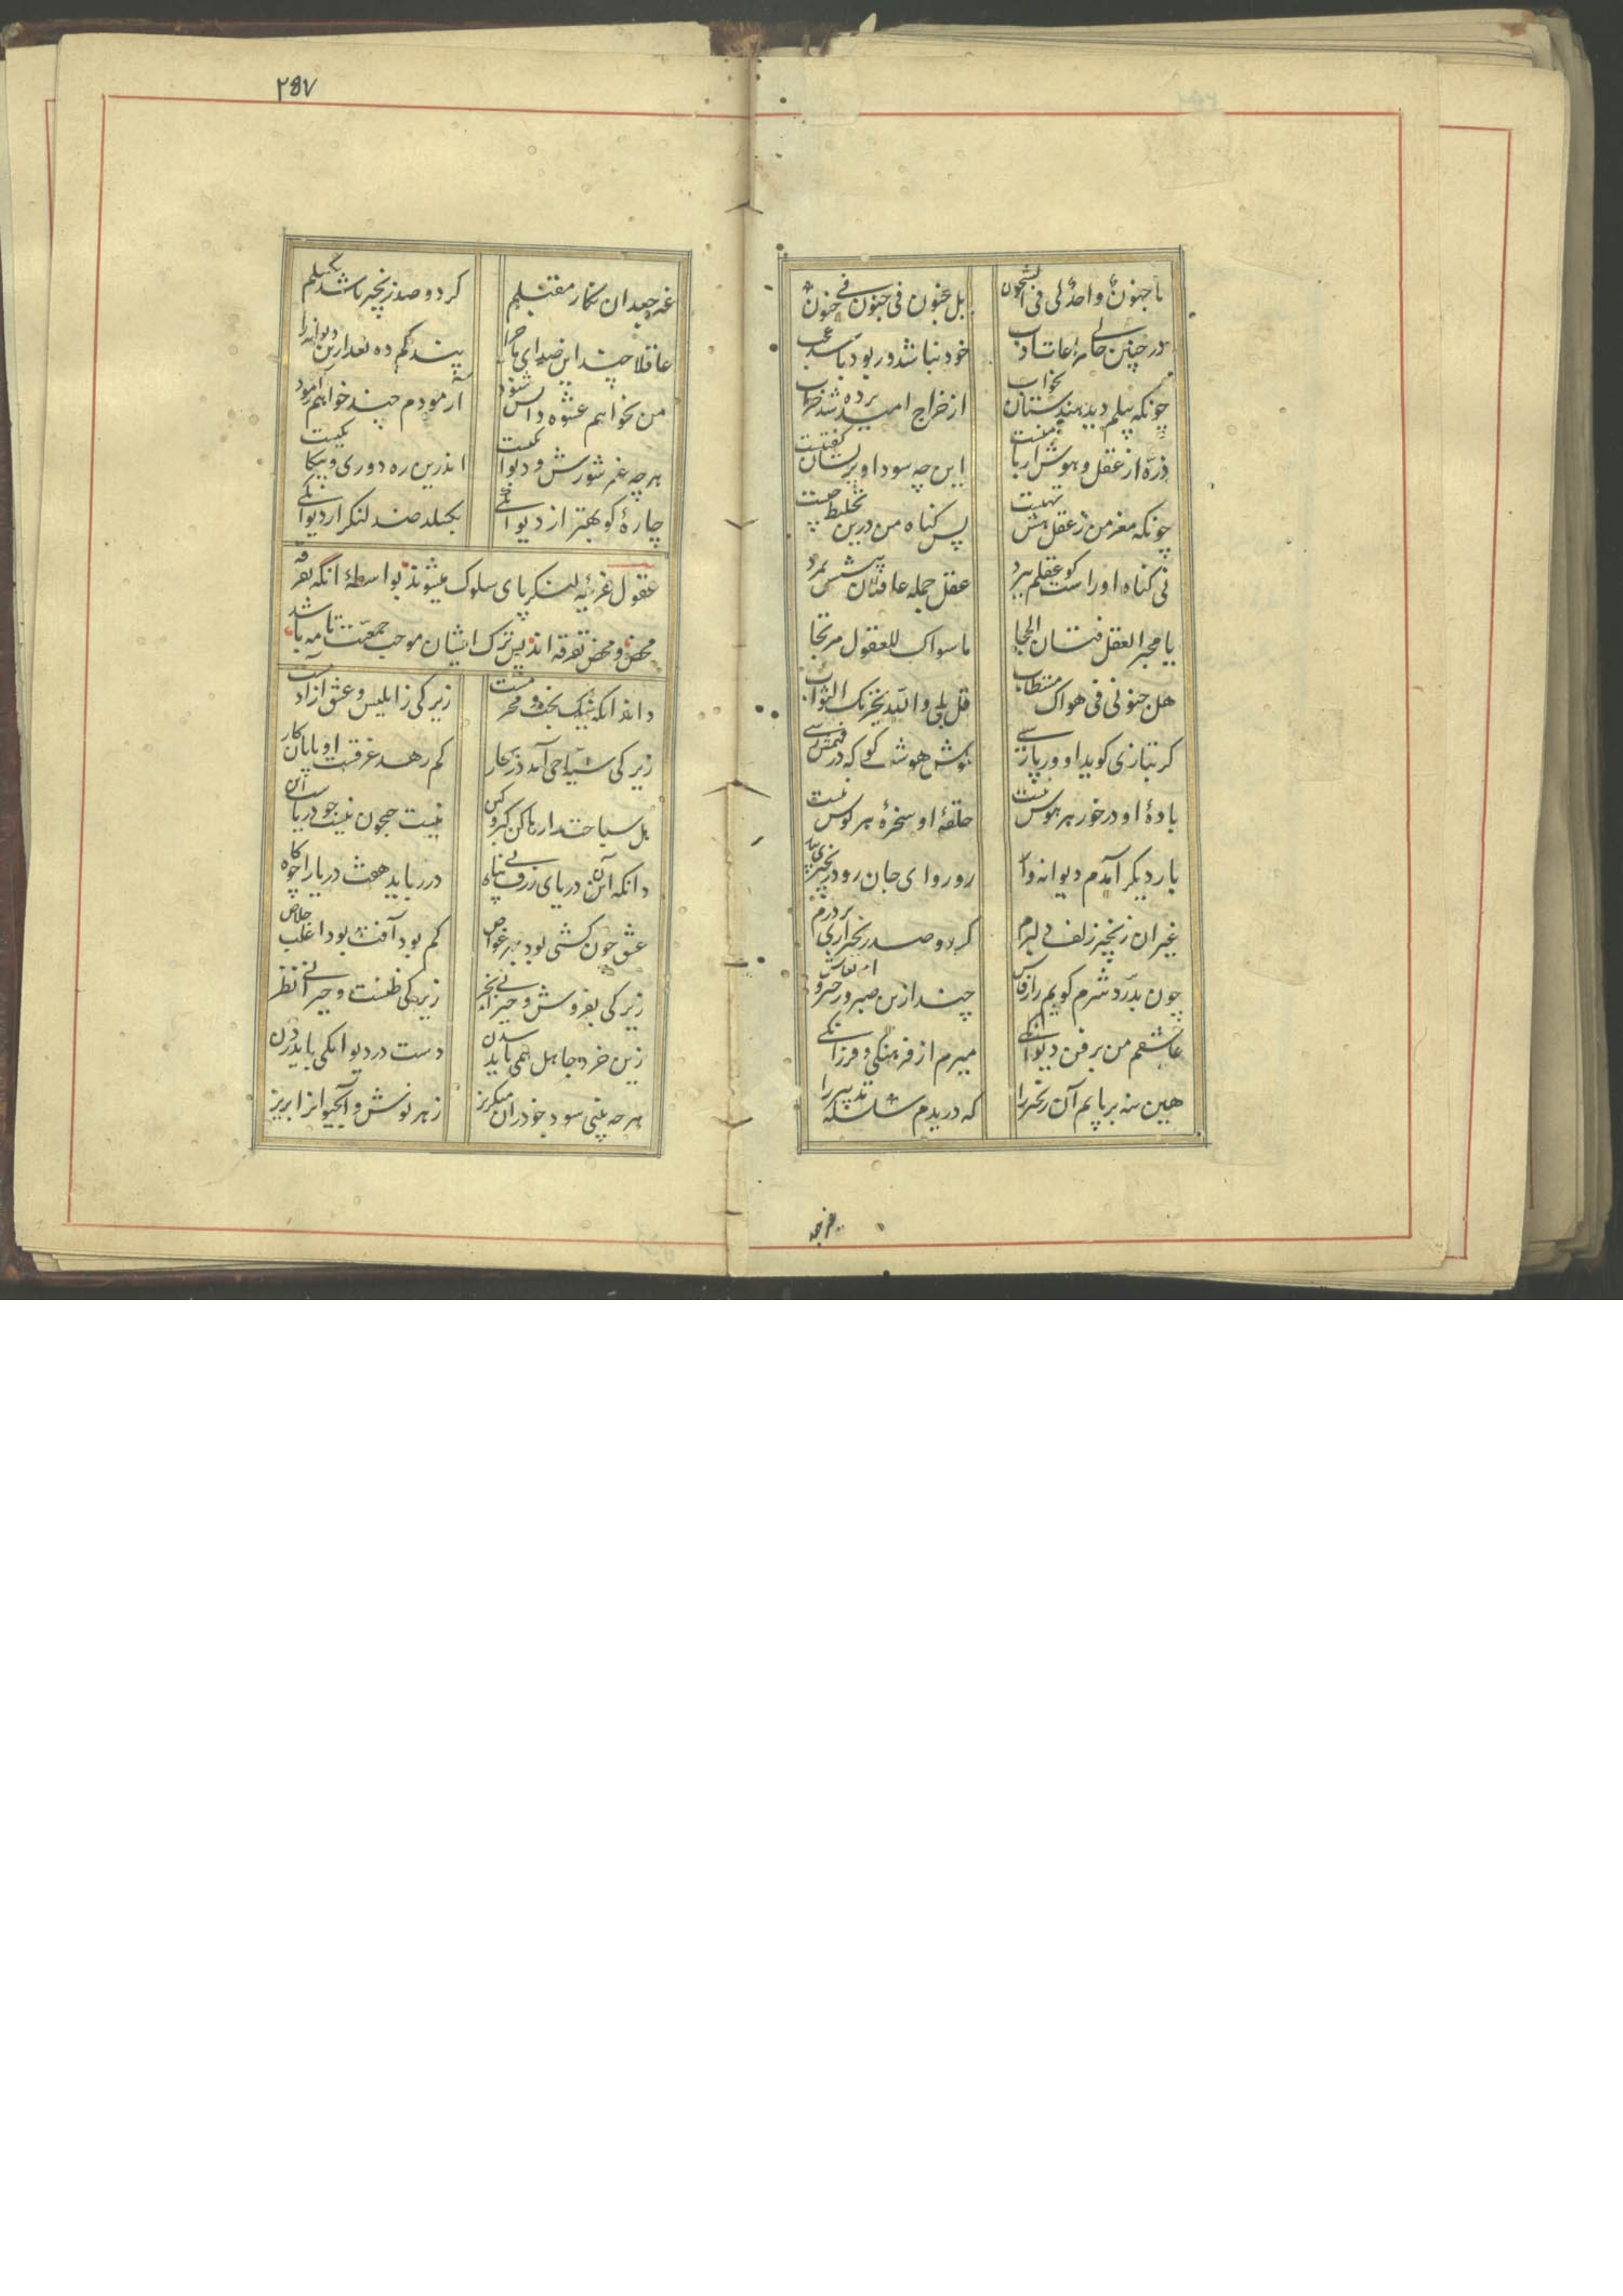 ما جنونٌ واحدٌ لی فی الشجون
بل جنون فی جنون فی جنون
در چنین حالی مراعات ادب
خود نباشد ور بود باشد عجب
چونکه پیلم دید هندستان بخواب
از خراج امید برده شد خراب
ذرهٔ از عقل و هوش ار با منست
این چه سودا و پریشان گفتنست
چونکه مغز من ز عقل و هش تهیست
پس گناه من درین تخلیط چیست
نی گناه او راست کو عقلم ببرد
عقل جمله عاقلان پیشش بمرد
یا مجیر العقل فتان الحجا
ما سواک للعقول مرتجا
هل جنونی فی هواک مستطاب
قل بلی والله یجزیک الثواب
گر بتازی گوید او ور پارسی
گوش هوشی کو که در فهمش رسی
بادهٔ او در خور هر هوش نیست
حلقهٔ او سخرهٔ هر گوش نیست
بار دیگر آمدم دیوانه وار
رو رو ای جان زود زنجیری بیار
غیر آن زنجیر زلف دلبرم
گر دو صد زنجیر آری بردرم
چون بدرد شرم گویم راز فاش
چند ازین صبر و زحیر و ارتعاش
عاشقم من بر فن دیوانگی
سیرم از فرهنگی و فرزانگی
هین منه بر پایم آن زنجیر را
که دریدم سلسله تدبیر را
غیر جعد
۲۵۷
غیر جعد آن نگار مقبلم
گر دو صد زنجیر باشد بگسلم
عاقلا چند این صدای ماجرا
پند کم ده بعد ازین دیوانه را
من نخواهم عشوه دانش شنود
آزمودم چند خواهم آزمود
هر چه غیر شورش و دیوانگیست
اندرین ره دوری و بیگانگیست
چارهٔ کو بهتر از دیوانگی
بگسلد صد لنگر از دیوانگی
عقول غریبه لنگر پای سلوک میشوند بواسطهٔ آنکه تفرقه
محض و محض تفرقه اند پس ترک ایشان موجب جمعیت تامه باشد
داند آنکو نیک بخت و محرمست
زیرکی ز ابلیس و عشق از آدمست
زیرکی سباحی آمد در بحار
کم رهد غرقست او پایان کار
هل سباحت را رها کن کبر و کین
نیست جیحون نیست جو دریاست این
وانکه این دریای ژرف بی پناه
در رباید هفت دریا را چو کاه
عشق چون کشتی بود بهر خواص
کم بود آفت بود اغلب خلاص
زیرکی بفروش و حیرانی بخر
زیرکی ظنست و حیرانی نظر
زین خرد جاهل همی باید شدن
دست در دیوانگی باید زدن
هر چه بینی سود خود زان میگریز
زهر نوش و آب حیوان را بریز